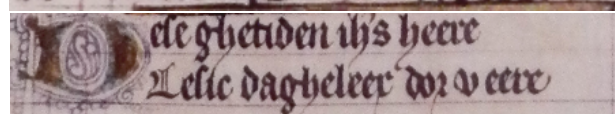 Dese ghetiden ihs heere
Lesic dagheleex dor v eere